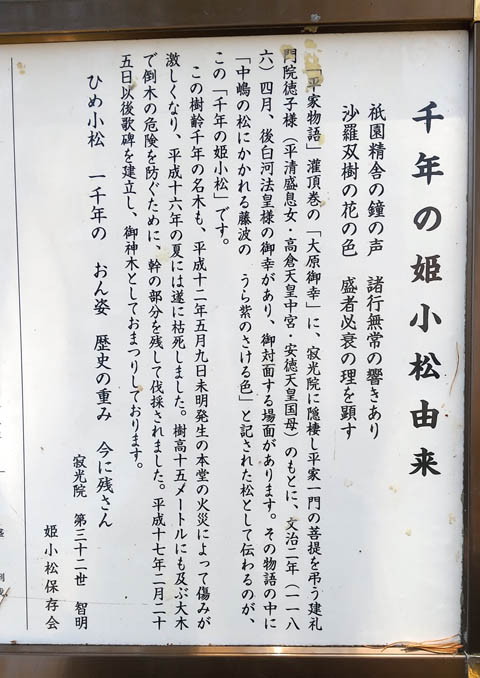 千年の姫小松由来
祇園精舎の鐘の声　諸行無常の響きあり
沙羅双樹の花の色　盛者必衰の理を顕す
「平家物語」灌頂巻の「大原御幸」に、寂光院に隠棲し平家一門の菩提を弔う建礼
門院徳子様（平清盛息女・高倉天皇中宮・安徳天皇国母）のもとに、文治二年（一一八
六）四月、後白河法皇様の御幸があり、御対面する場面があります。その物語の中に
「中嶋の松にかかれる藤波の　うら紫のさける色」と記された松として伝わるのが、
この「千年の姫小松」です。
この樹齢千年の名木も、平成十二年五月九日未明発生の本堂の火災によって傷みが
激しくなり、平成十六年の夏には遂に枯死しました。樹高十五メートルにも及ぶ大木
で倒木の危険を防ぐために、幹の部分を残して伐採されました。平成十七年二月二十
五日以後歌碑を建立し、御神木としておまつりしております。
ひめ小松　一千年の　おん姿　歴史の重み　今に残さん
寂光院　第三十二世　智明
姫小松保存会